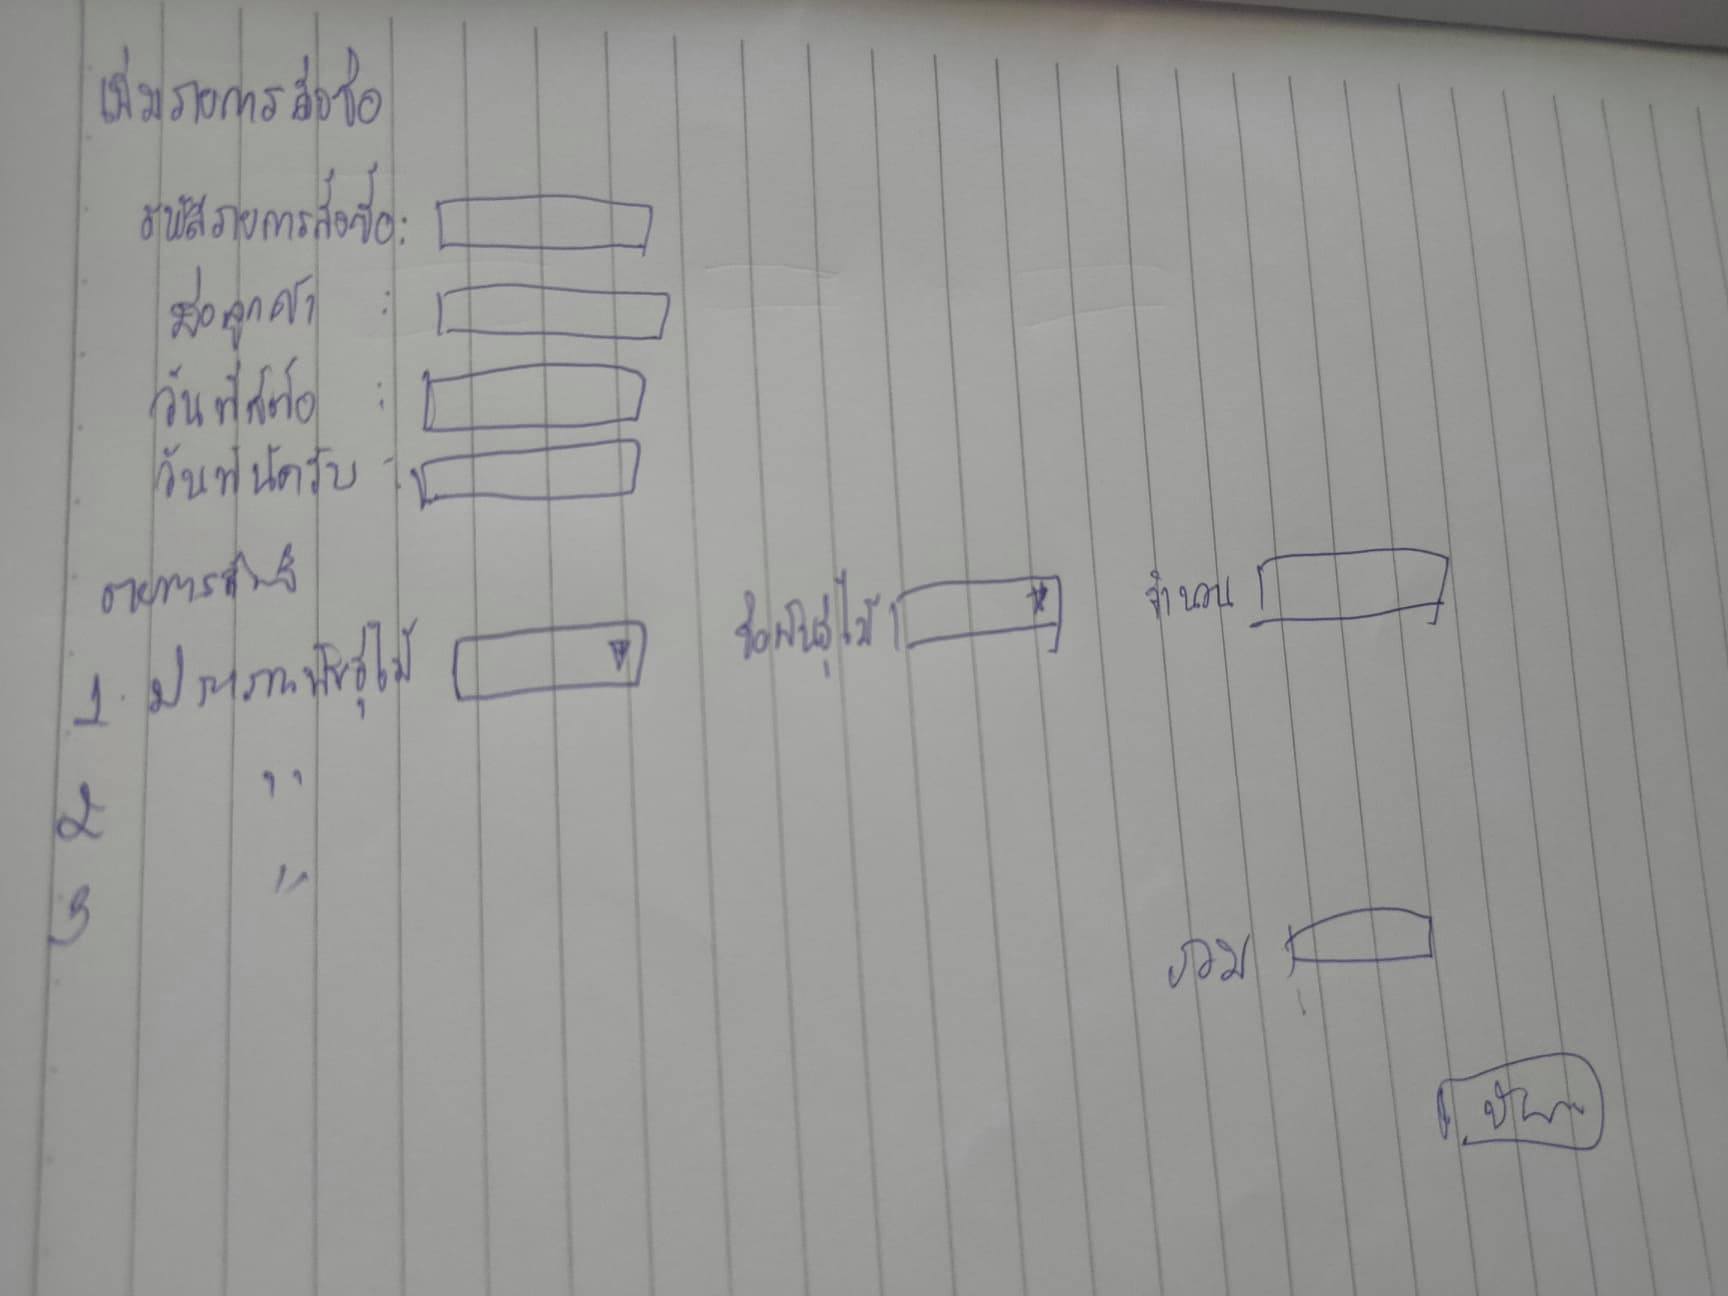 เพิ่มรายการสั่งซื้อ
รหัสรายการสั่งซื้อ:
ชื่อลูกค้า :
วันที่สั่งซื้อ :
วันที่นัดรับ :
รายการสั่งซื้อ
1. ประเภทพันธุ์ไม้ ชื่อพันธุ์ไม้ จำนวน
2 ''
3 ''
รวม